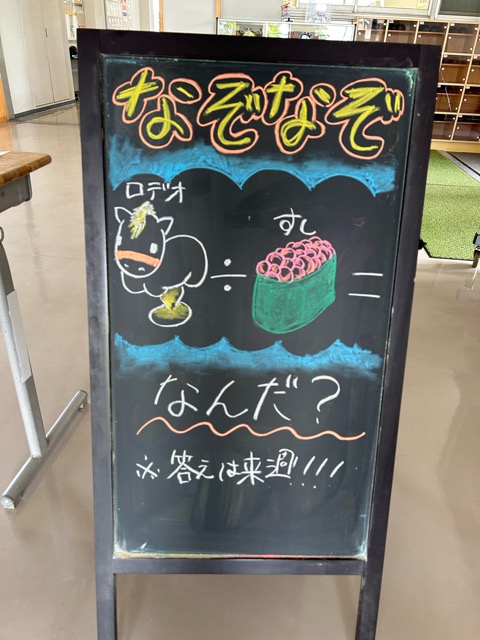 なぞなぞ
ロデオ
すし
÷ =
なんだ?
※答えは来週!!!